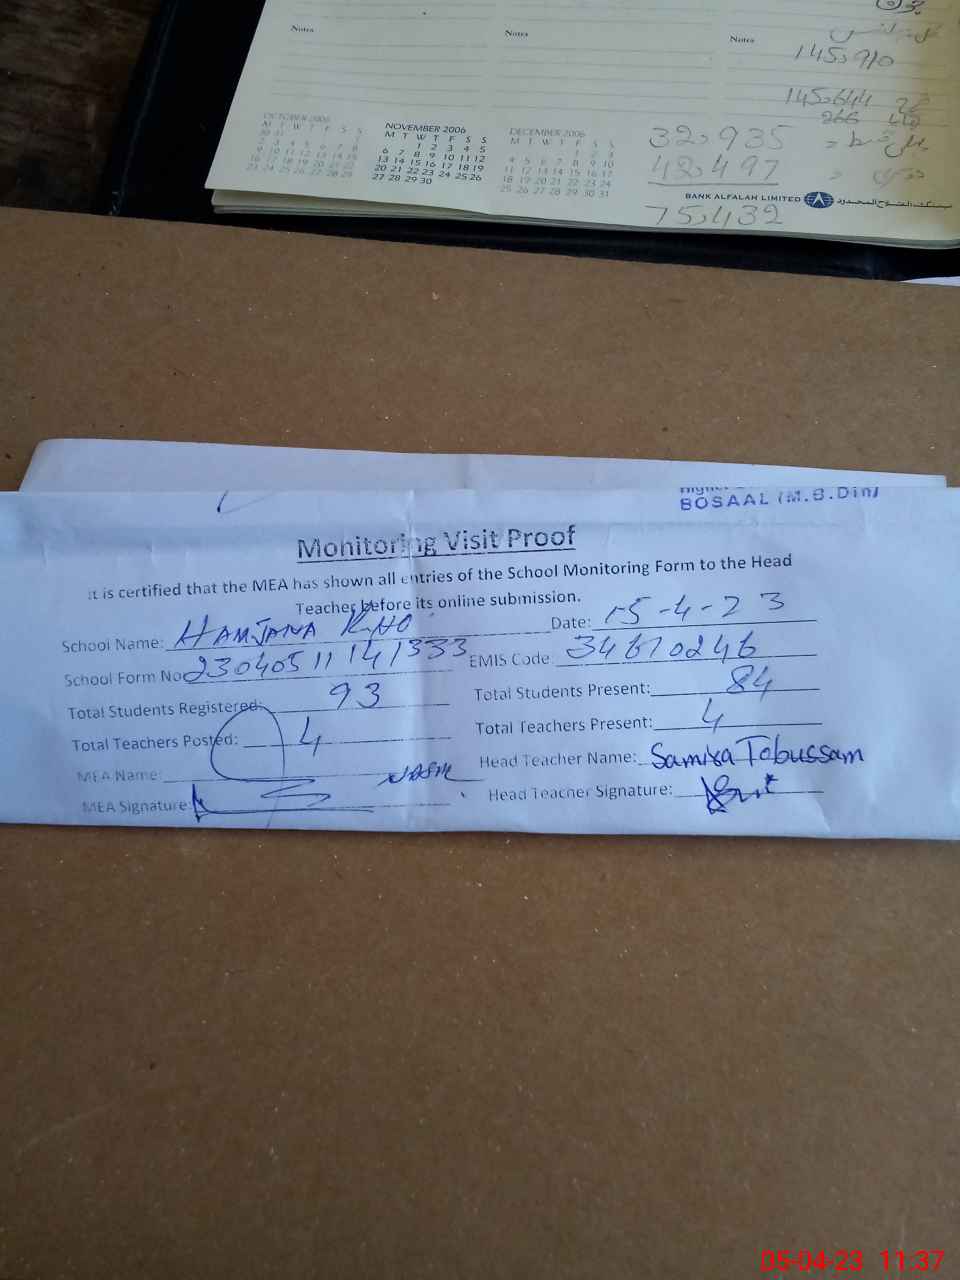 Notes Notes Notes
145,910
145,644
266
32,935
42,497
75,432
OCTOBER 2006 NOVEMBER 2006 DECEMBER 2006
M T W T F S S M T W T F S S M T W T F S S
30 31 1 2 3 4 5 1 2 3
2 3 4 5 6 7 8 6 7 8 9 10 11 12 4 5 6 7 8 9 10
9 10 11 12 13 14 15 13 14 15 16 17 18 19 11 12 13 14 15 16 17
16 17 18 19 20 21 22 20 21 22 23 24 25 26 18 19 20 21 22 23 24
23 24 25 26 27 28 29 27 28 29 30 25 26 27 28 29 30 31
BANK ALFALAH LIMITED
BOSAAL (M.B.Din)
Monitoring Visit Proof
It is certified that the MEA has shown all entries of the School Monitoring Form to the Head
Teacher before its online submission.
School Name: HAMJANA KHO Date: 15-4-23
School Form No 23040511141333 EMIS Code: 34610246
Total Students Registered: 93 Total Students Present: 84
Total Teachers Posted: 4 Total Teachers Present: 4
MEA Name: Head Teacher Name: Samira Tobussam
MEA Signature: Head Teacher Signature:
05-04-23 11:37